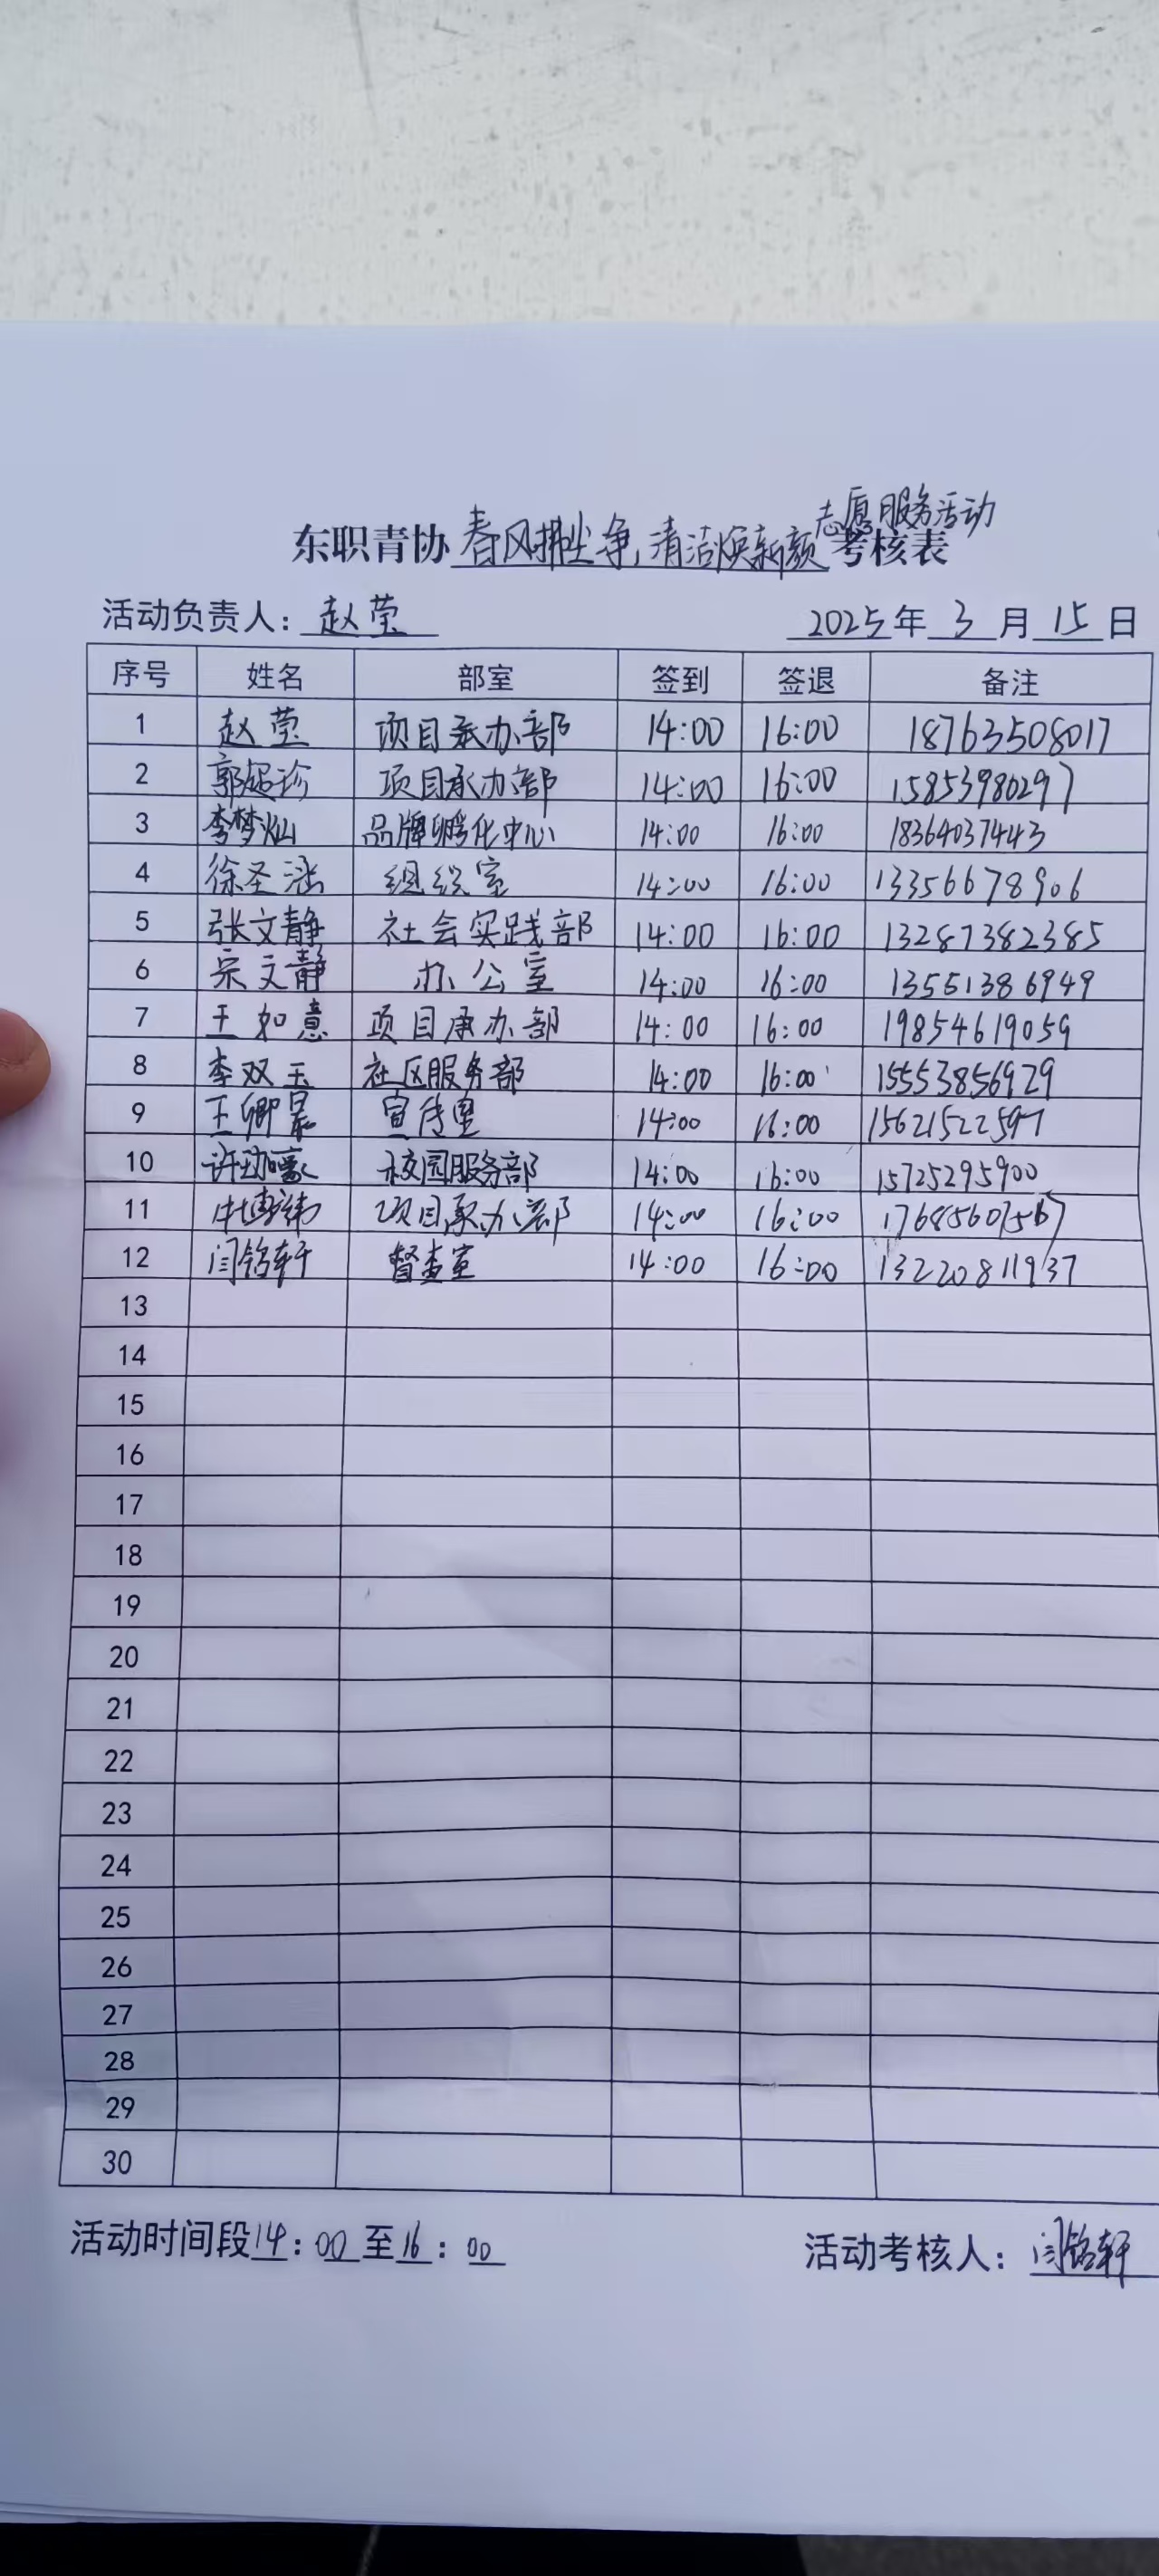 志愿服务活动
东职青协春风拂尘净,清洁焕新颜考核表
活动负责人: 赵莹 2025年3月15日
序号 姓名 部室 签到 签退 备注
1 赵莹 项目承办部 14:00 16:00 18763508017
2 郭超珍 项目承办部 14:00 16:00 15853980297
3 李梦灿 品牌孵化中心 14:00 16:00 18364037443
4 徐圣涵 组织室 14:00 16:00 13356678906
5 张文静 社会实践部 14:00 16:00 13287382385
6 宗文静 办公室 14:00 16:00 13561386949
7 王如意 项目承办部 14:00 16:00 19854619059
8 李双玉 社区服务部 14:00 16:00 15553856929
9 王卿 宣传里 14:00 16:00 15621522597
10 许 校园服务部 14:00 16:00 15725295900
11 项目承办部 14:00 16:00 17685607567
12 闫铭轩 督查室 14:00 16:00 13220811937
13
14
15
16
17
18
19
20
21
22
23
24
25
26
27
28
29
30
活动时间段14:00至16:00 活动考核人: 闫铭轩